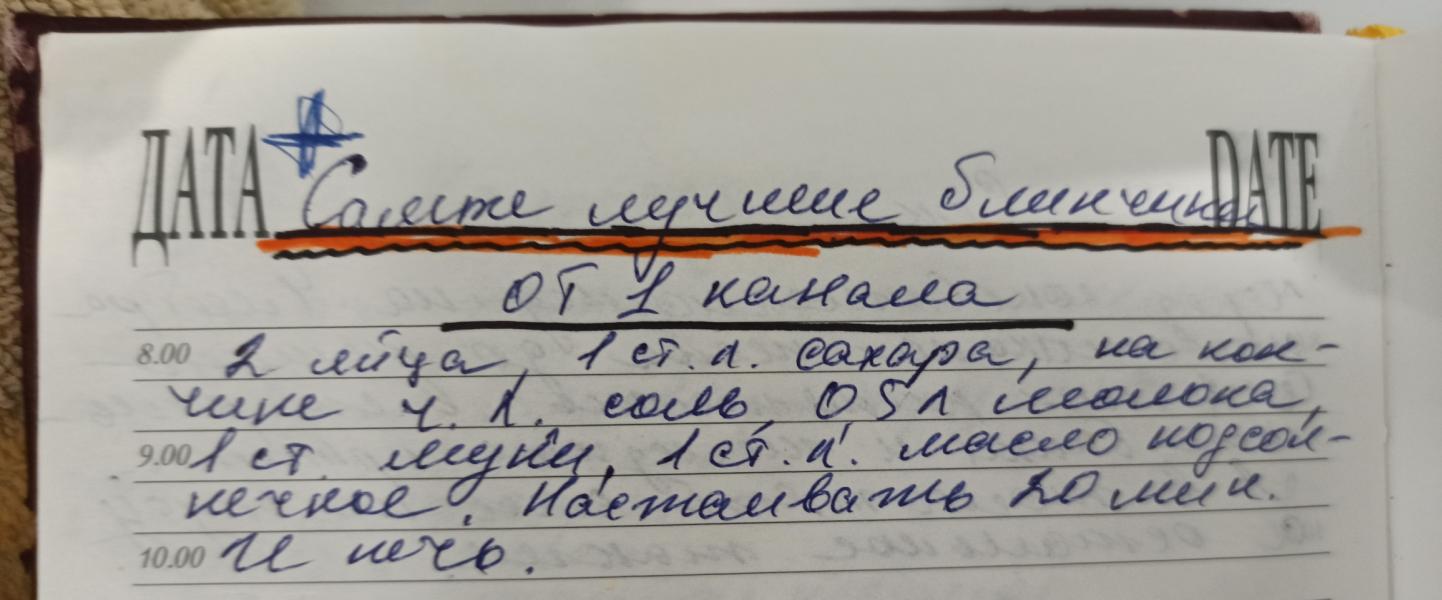 ДАТА Самые лучшие блинчики DATE
от 1 канала
8.00 2 яйца, 1 ст. л. сахара, на кон-
чике ч. л. соль, 0,5 л молока,
9.00 1 ст. муки, 1 ст. л. масло подсол-
нечное. Настаивать 20 мин.
10.00 И печь.